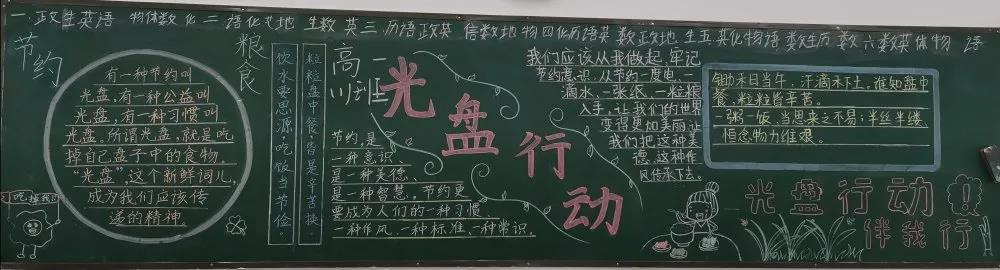 一.政生英语 物体数化 二 语化史地 生数英三 历语政英 信数地物四化历语英 数政地生五英化物语数生历数六数英体物 语
节约
粮食
有一种节约叫
光盘,有一种公益叫
光盘,有一种习惯叫
光盘。所谓光盘,就是吃
掉自己盘子中的食物。
“光盘”,这个新鲜词儿,
成为我们应该传
递的精神。
吃挂我
饮水要思源,吃饭当节俭。
粒粒盘中餐,皆是辛苦换。
高一
川班
光盘行动
节约,是
一种意识、
是一种美德、
是一种智慧。节约更
要成为人们的一种习惯、
一种作风、一种标准、一种常识。
我们应该从我做起,牢记
节约意识,从节约一度电、一
滴水、一张纸、一粒粮
入手,让我们的世界
变得更加美丽,让
我们把这种美
德、这种作
风传承下去。
锄禾日当午,汗滴禾下土,谁知盘中
餐,粒粒皆辛苦。
一粥一饭,当思来之不易;半丝半缕,
恒念物力维艰。
光盘行动
伴我行